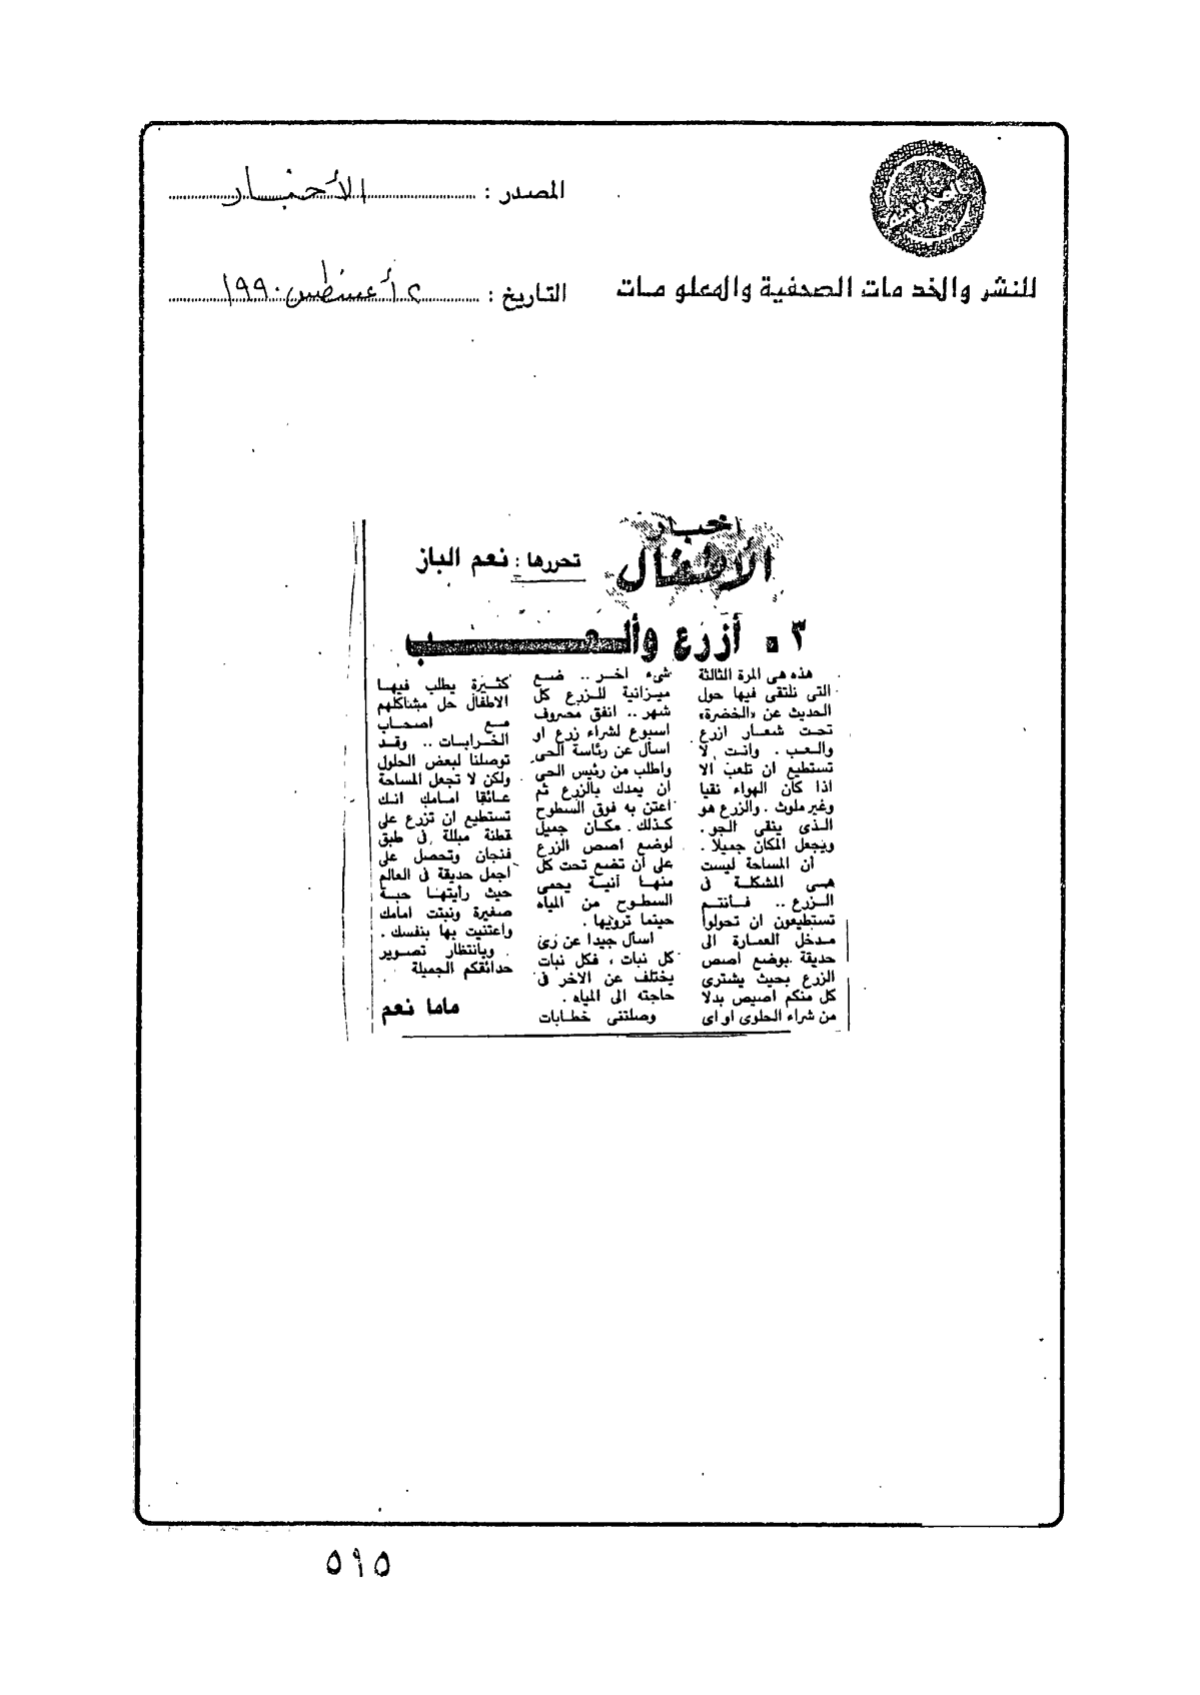 المصدر : الأخبار
للنشر والخدمات الصحفية والمعلومات
التاريخ : ٢ أغسطس ١٩٩٠
اخبار
الأطفال
تحررها : نعم الباز
٣ . أزرع وألعب
هذه هى المرة الثالثة
التى نلتقى فيها حول
الحديث عن «الخضرة»
تحت شعار ازرع
والعب . وانت لا
تستطيع ان تلعب الا
اذا كان الهواء نقيا
وغير ملوث . والزرع هو
الذى ينقى الجو .
ويجعل المكان جميلا .
أن المساحة ليست
هى المشكلة فى
الزرع .. فأنتم
تستطيعون ان تحولوا
مدخل العمارة الى
حديقة بوضع اصص
الزرع بحيث يشترى
كل منكم اصيص بدلا
من شراء الحلوى او اى
شىء اخر .. ضع
ميزانية للزرع كل
شهر .. انفق مصروف
اسبوع لشراء زرع او
اسأل عن رئاسة الحى
واطلب من رئيس الحى
ان يمدك بالزرع ثم
اعتن به فوق السطوح
كذلك . مكان جميل
لوضع اصص الزرع
على أن تضع تحت كل
منها آنية يحمى
السطوح من المياه
حينما ترويها .
اسأل جيدا عن رى
كل نبات ، فكل نبات
يختلف عن الاخر فى
حاجته الى المياه .
وصلتنى خطابات
كثيرة يطلب فيها
الاطفال حل مشاكلهم
مع اصحاب
الخرابات .. وقد
توصلنا لبعض الحلول
ولكن لا تجعل المساحة
عائقا امامك انك
تستطيع ان تزرع على
قطنة مبللة فى طبق
فنجان وتحصل على
اجمل حديقة فى العالم
حيث رأيتها حبة
صغيرة ونبتت امامك
واعتنيت بها بنفسك .
وبانتظار تصوير
حدائقكم الجميلة
ماما نعم
٥٩٥